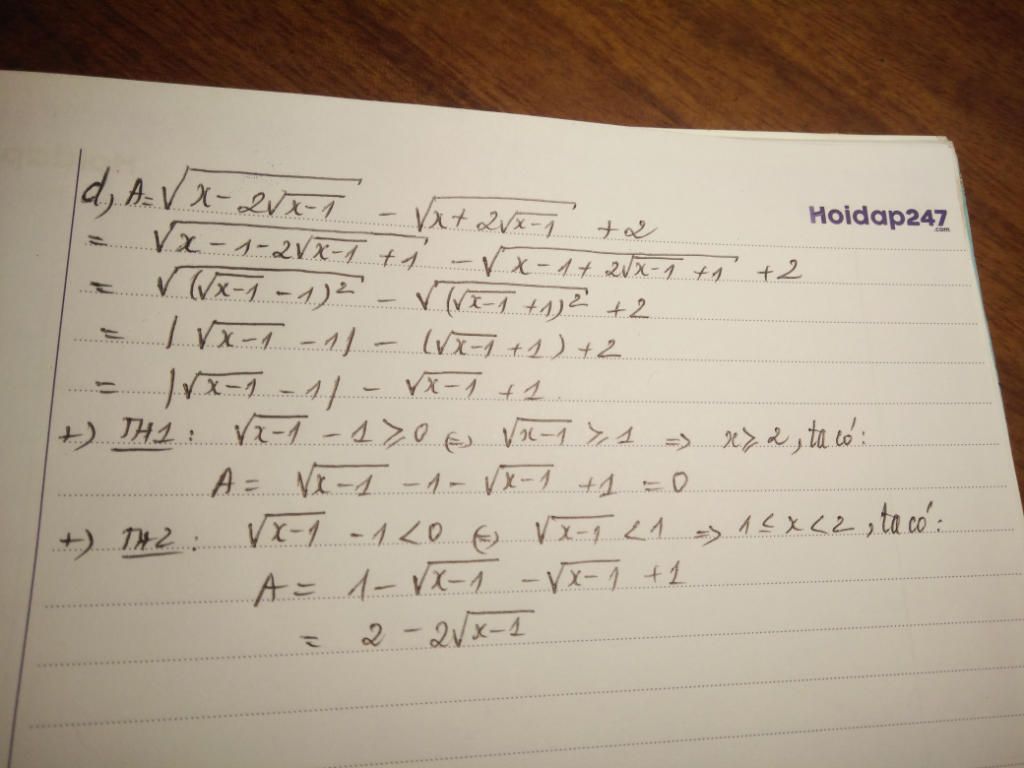 d, A = √(x - 2√(x-1)) - √(x + 2√(x-1)) + 2
Hoidap247
.com
= √(x - 1 - 2√(x-1) + 1) - √(x - 1 + 2√(x-1) + 1) + 2
= √((√(x-1) - 1)²) - √((√(x-1) + 1)²) + 2
= |√(x-1) - 1| - (√(x-1) + 1) + 2
= |√(x-1) - 1| - √(x-1) + 1.
+) TH1 : √(x-1) - 1 ≥ 0 ⇔ √(x-1) ≥ 1 ⇒ x ≥ 2, ta có:
A = √(x-1) - 1 - √(x-1) + 1 = 0
+) TH2 : √(x-1) - 1 < 0 ⇔ √(x-1) < 1 ⇒ 1 ≤ x < 2, ta có:
A = 1 - √(x-1) - √(x-1) + 1
= 2 - 2√(x-1)